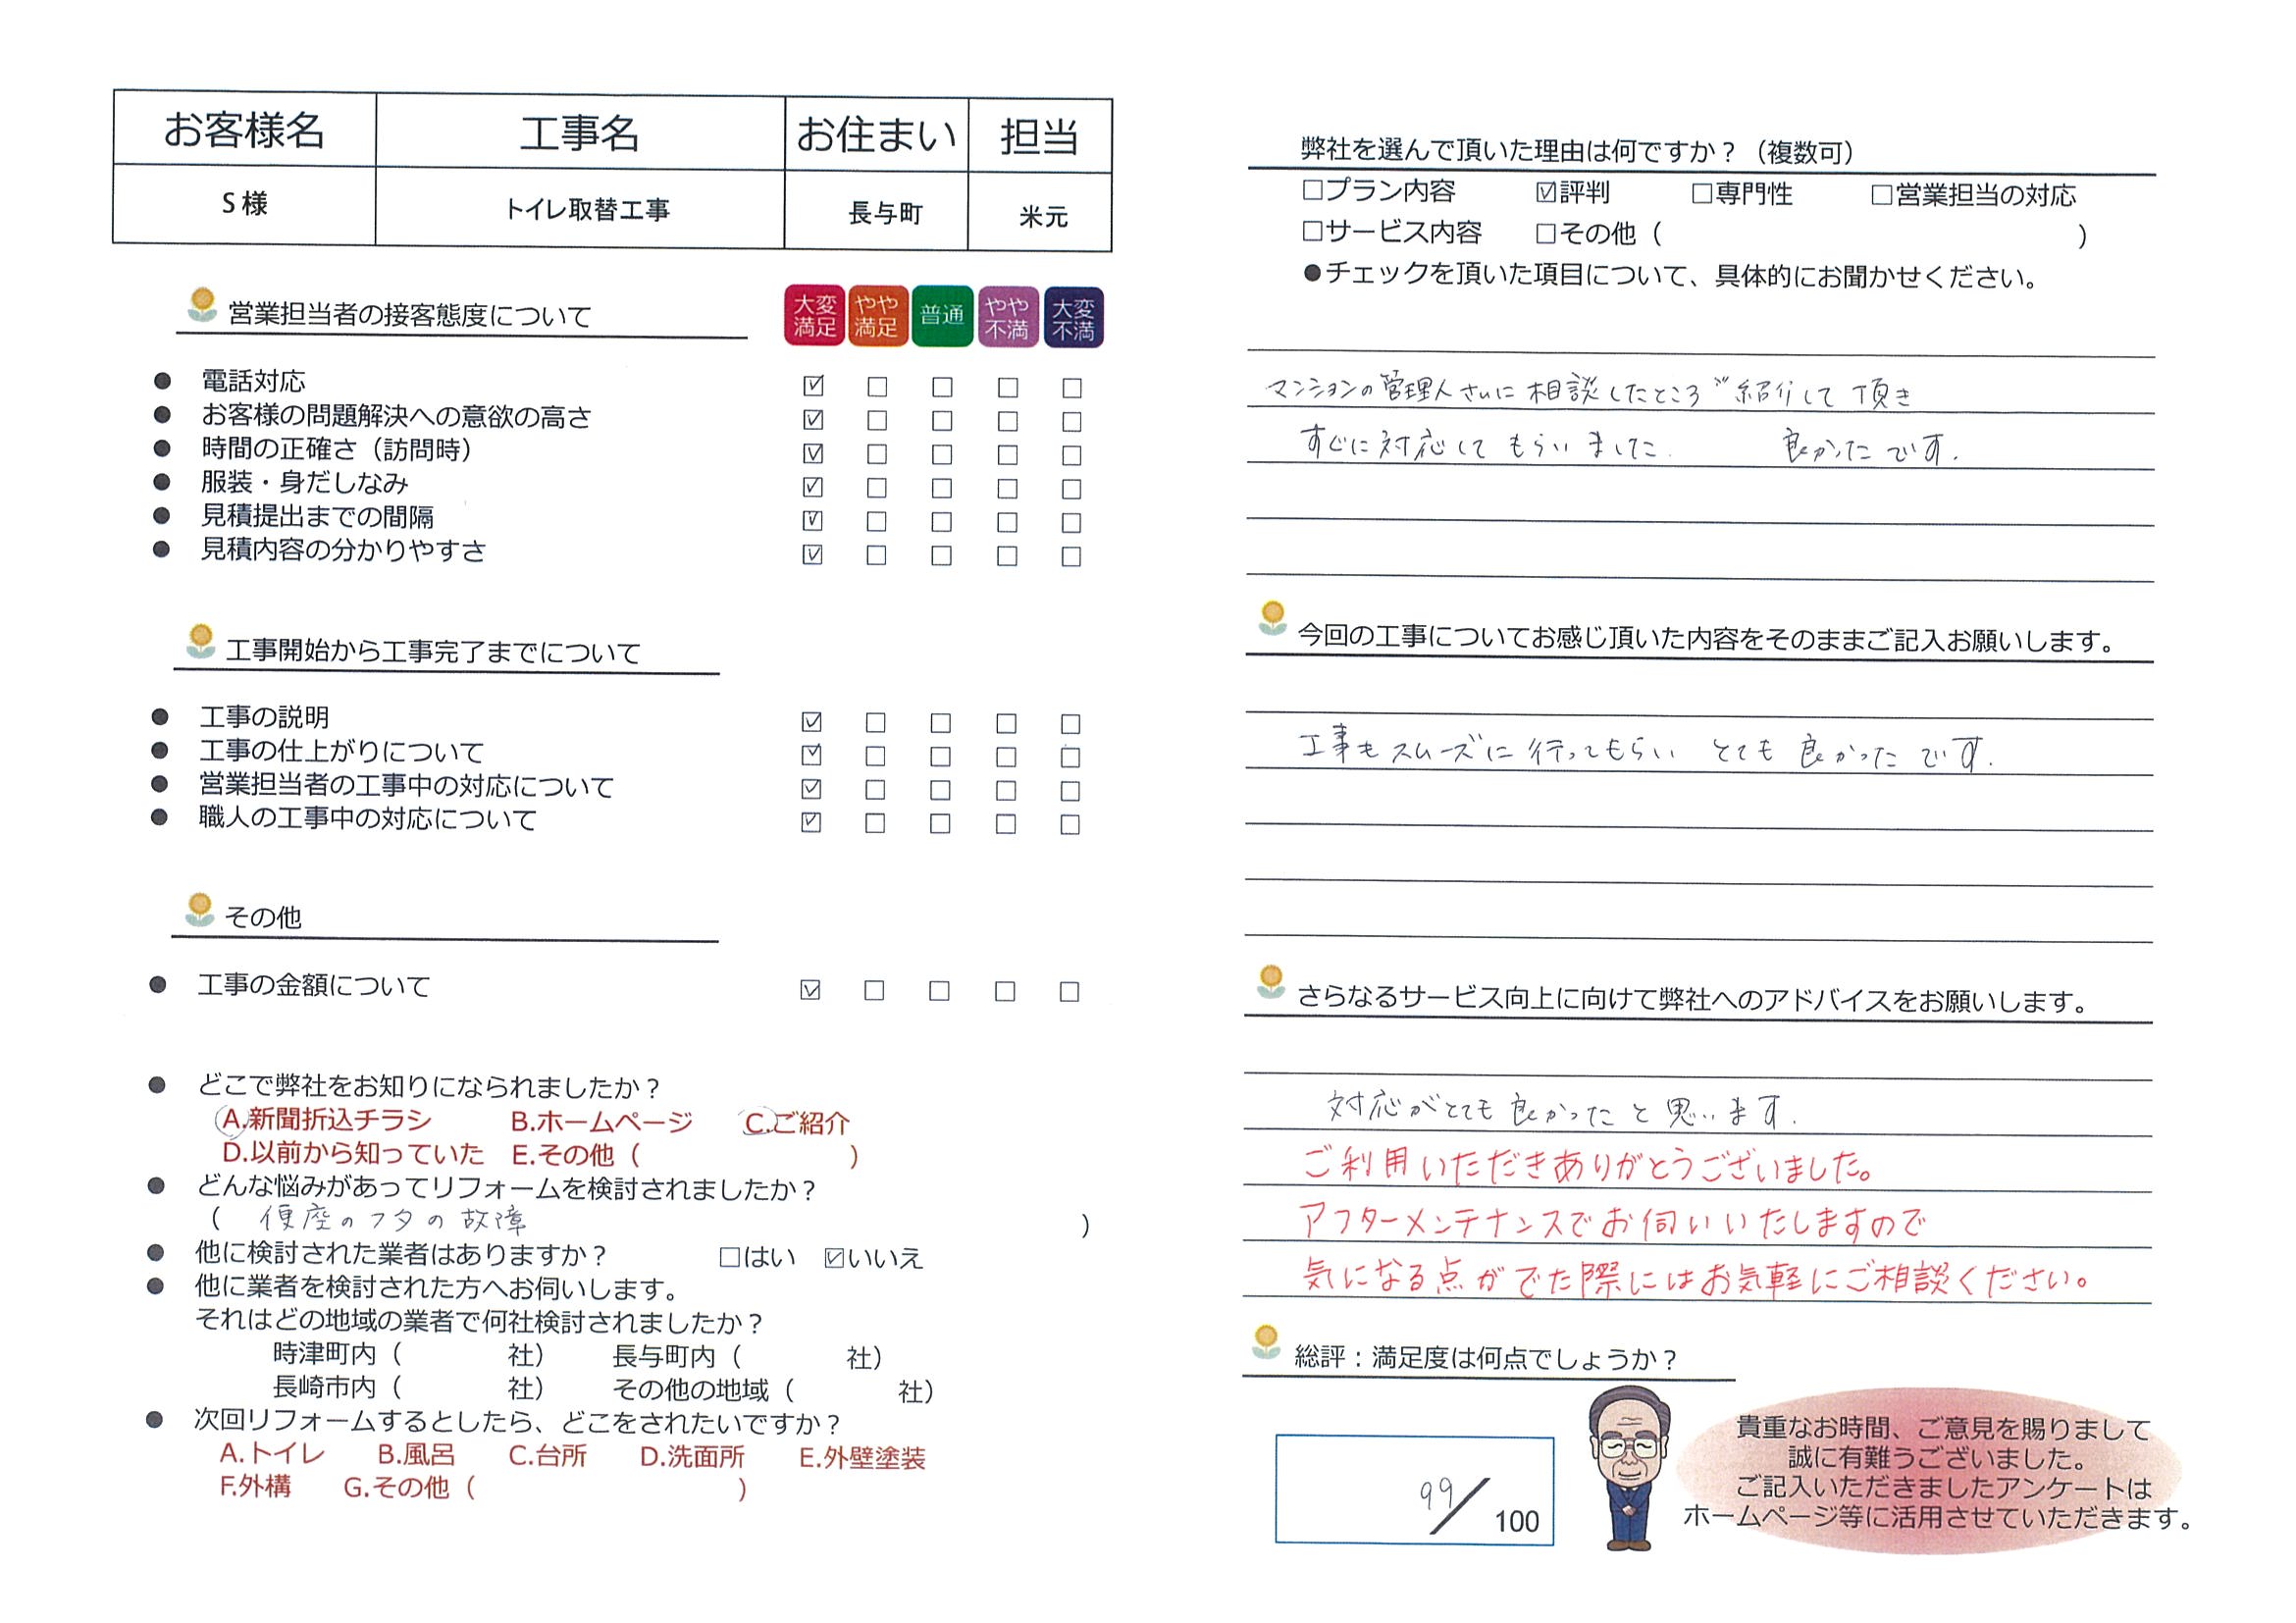 お客様名 工事名 お住まい 担当
S様 トイレ取替工事 長与町 米元
営業担当者の接客態度について
大変満足 やや満足 普通 やや不満 大変不満
● 電話対応 ☑ □ □ □ □
● お客様の問題解決への意欲の高さ ☑ □ □ □ □
● 時間の正確さ（訪問時） ☑ □ □ □ □
● 服装・身だしなみ ☑ □ □ □ □
● 見積提出までの間隔 ☑ □ □ □ □
● 見積内容の分かりやすさ ☑ □ □ □ □
工事開始から工事完了までについて
● 工事の説明 ☑ □ □ □ □
● 工事の仕上がりについて ☑ □ □ □ □
● 営業担当者の工事中の対応について ☑ □ □ □ □
● 職人の工事中の対応について ☑ □ □ □ □
その他
● 工事の金額について ☑ □ □ □ □
● どこで弊社をお知りになられましたか？
A.新聞折込チラシ B.ホームページ C.ご紹介
D.以前から知っていた E.その他（ ）
● どんな悩みがあってリフォームを検討されましたか？
（ 便座のフタの故障 ）
● 他に検討された業者はありますか？ □はい ☑いいえ
● 他に業者を検討された方へお伺いします。
それはどの地域の業者で何社検討されましたか？
時津町内（ 社） 長与町内（ 社）
長崎市内（ 社） その他の地域（ 社）
● 次回リフォームするとしたら、どこをされたいですか？
A.トイレ B.風呂 C.台所 D.洗面所 E.外壁塗装
F.外構 G.その他（ ）
弊社を選んで頂いた理由は何ですか？（複数可）
□プラン内容 ☑評判 □専門性 □営業担当の対応
□サービス内容 □その他（ ）
●チェックを頂いた項目について、具体的にお聞かせください。
マンションの管理人さんに相談したところ〃紹介して頂き
すぐに対応してもらいました. 良かったです.
今回の工事についてお感じ頂いた内容をそのままご記入お願いします。
工事もスムーズに行ってもらい とても良かったです.
さらなるサービス向上に向けて弊社へのアドバイスをお願いします。
対応がとても良かったと思います.
ご利用いただきありがとうございました。
アフターメンテナンスでお伺いいたしますので
気になる点がでた際にはお気軽にご相談ください。
総評：満足度は何点でしょうか？
99/100
貴重なお時間、ご意見を賜りまして
誠に有難うございました。
ご記入いただきましたアンケートは
ホームページ等に活用させていただきます。